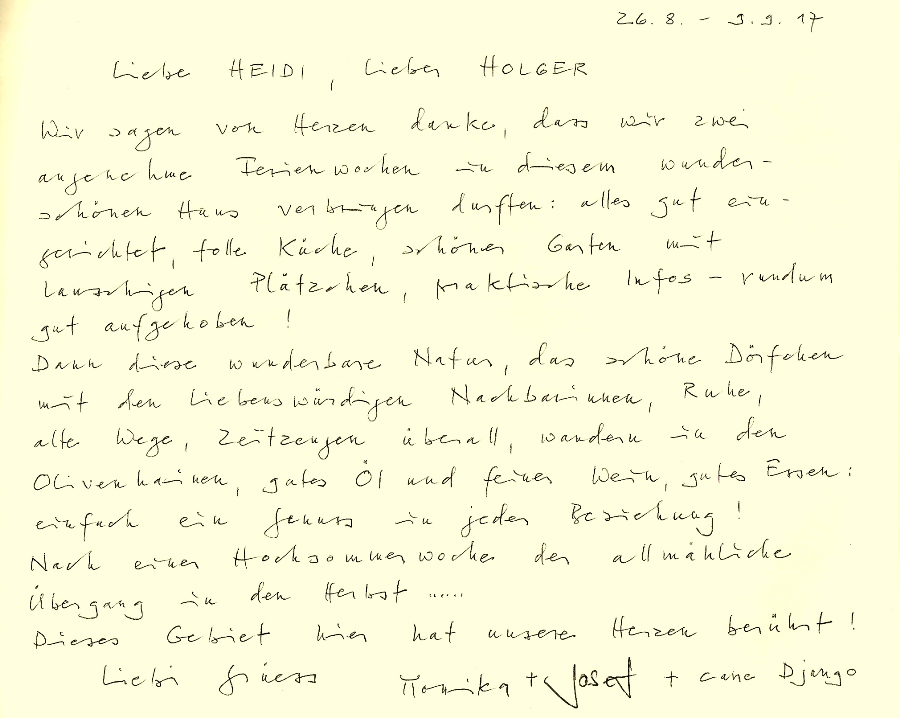 26.8. - 9.9.17
Liebe HEIDI, lieber HOLGER
Wir sagen von Herzen danke, dass wir zwei
angenehme Ferienwochen in diesem wunder-
schönen Haus verbringen durften: alles gut ein-
gerichtet, tolle Küche, schöner Garten mit
lauschigen Plätzchen, praktische Infos - rundum
gut aufgehoben!
Dann diese wunderbare Natur, das schöne Dörfchen
mit den liebenswürdigen Nachbarinnen, Ruhe,
alte Wege, Zeitzeugen überall, wandern in den
Olivenhainen, gutes Öl und feiner Wein, gutes Essen:
einfach ein Genuss in jeder Beziehung!
Nach einer Hochsommerwoche der allmähliche
Übergang in den Herbst .....
Dieses Gebiet hier hat unsere Herzen berührt!
Liebi Grüess Monika + Josef + cane Django